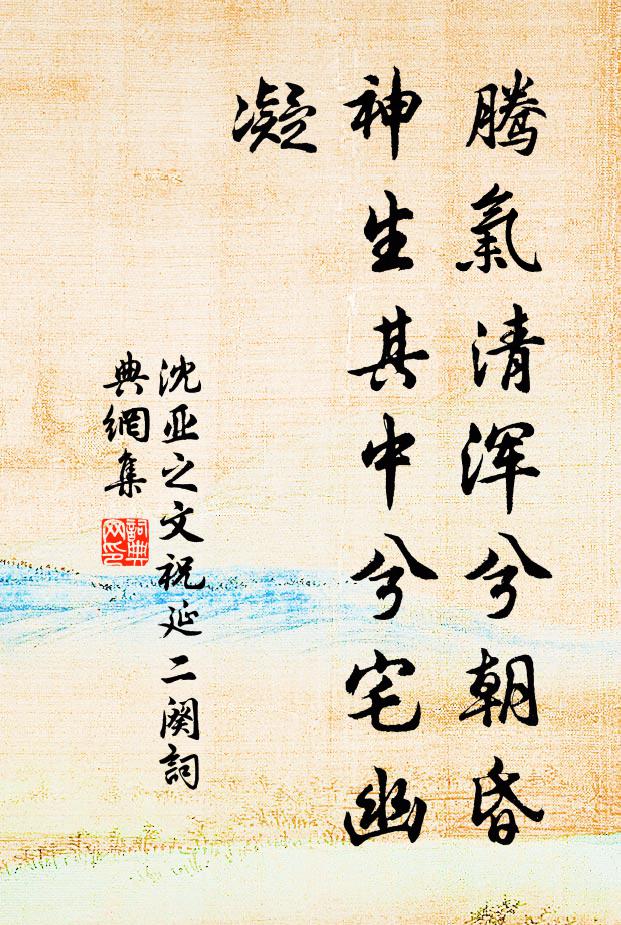 騰氣清渾兮朝昏
神生其中兮宅幽
凝
沈亚之文祝延二阕詞
典網集
詞典
网印